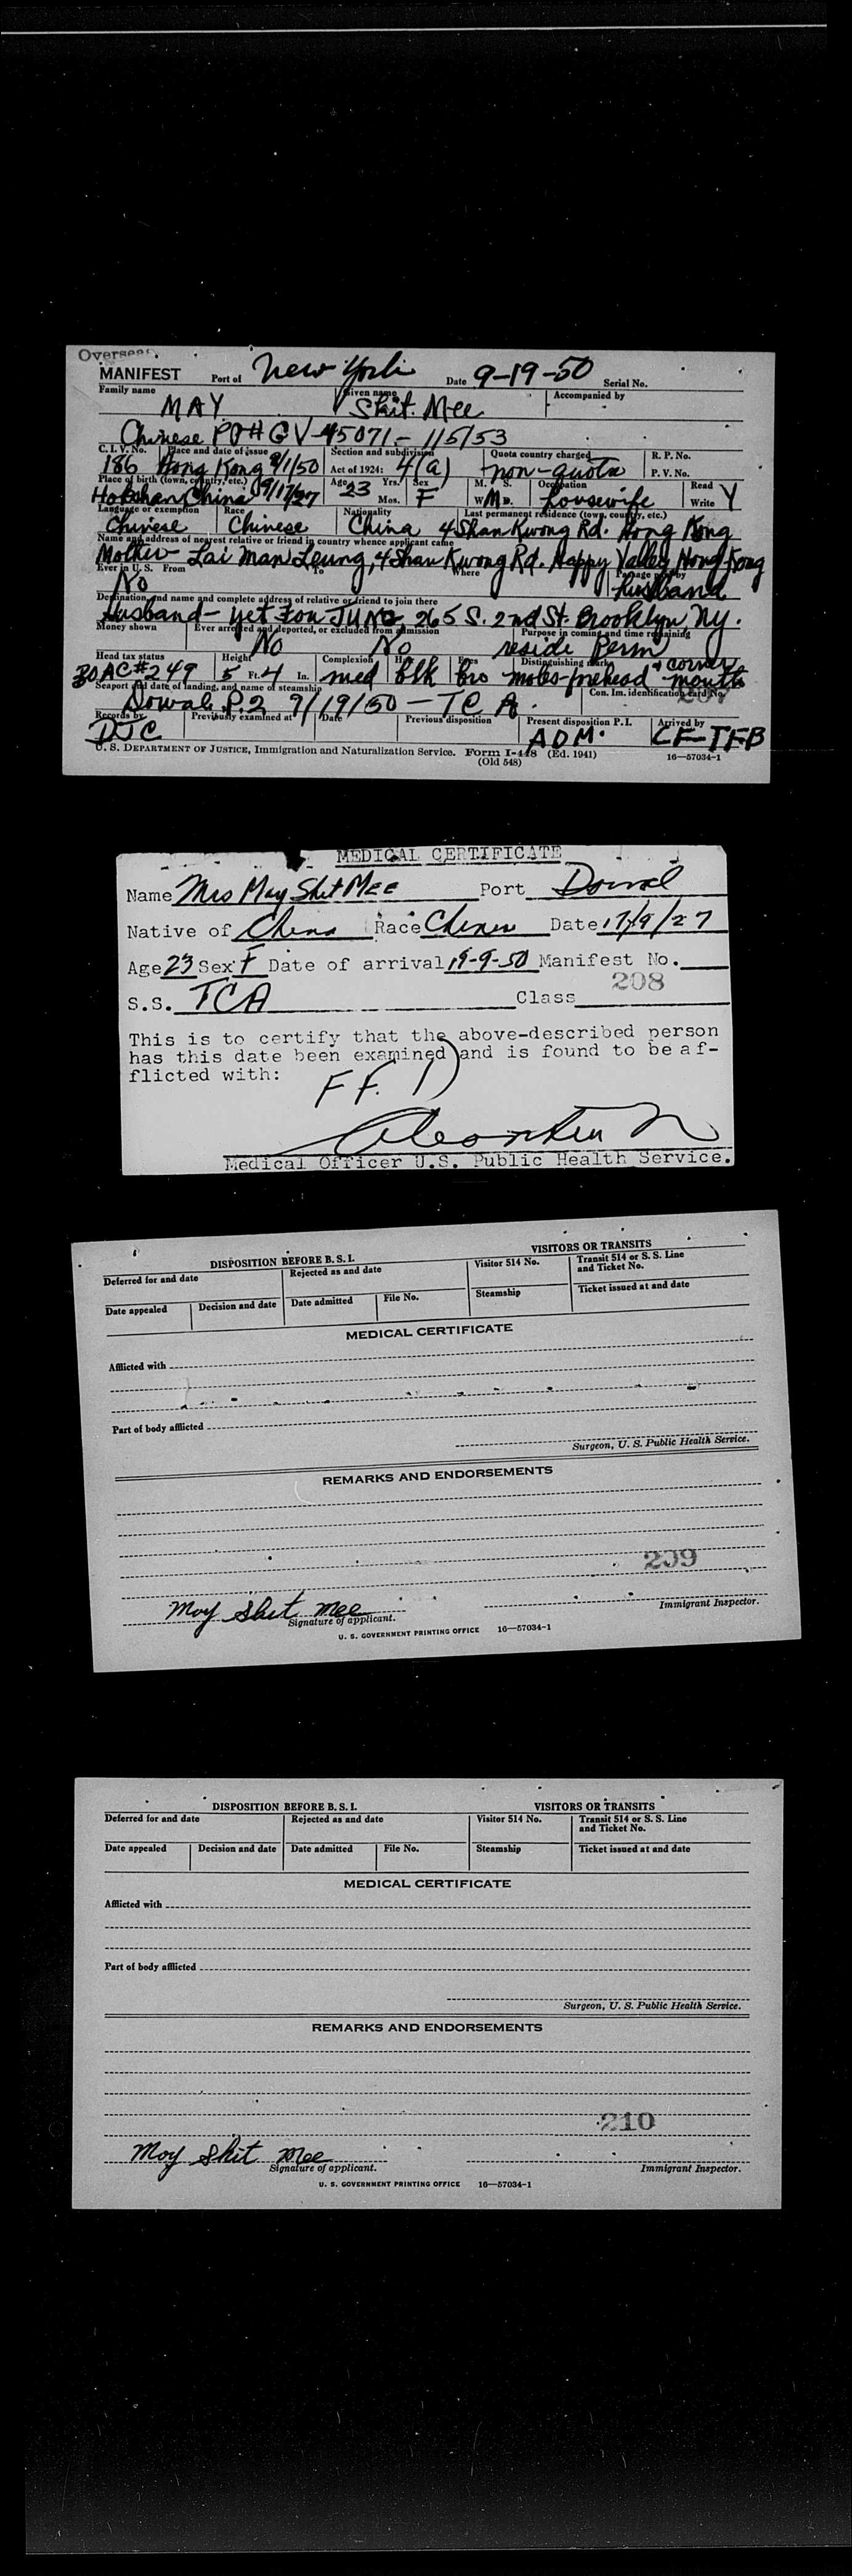 Overseas
MANIFEST Port of New York Date 9-19-50 Serial No.
Family name Given name Accompanied by
MAY Shit Mee
Chinese PP# GV-45071 - 1/5/53
C. I. V. No. Place and date of issue Section and subdivision Quota country charged R. P. No.
186 Hong Kong 9/1/50 Act of 1924: 4(a) non-quota P. V. No.
Place of birth (town, country, etc.) Age Yrs. Sex M. S. Occupation Read
Hokshan China 9/17/27 23 Mos. F W M D. housewife Write Y
Language or exemption Race Nationality Last permanent residence (town, country, etc.)
Chinese Chinese China 4 Shan Kwong Rd. Hong Kong
Name and address of nearest relative or friend in country whence applicant came
Mother Lai Man Leung, 4 Shan Kwong Rd. Happy Valley Hong Kong
Ever in U. S. From To Where Passage paid by
No husband
Destination, and name and complete address of relative or friend to join there
Husband - Yet Fon JUNG 265 S. 2nd St. Brooklyn NY.
Money shown Ever arrested and deported, or excluded from admission Purpose in coming and time remaining
No No reside Perm
Head tax status Height Complexion Hair Eyes Distinguishing marks
BOAC #249 5 Ft. 4 In. med blk bro moles-forehead & corner mouth
Seaport and date of landing, and name of steamship Con. Im. identification card No.
207
Dorval P.2 9/19/50 - TCA.
Records by Previously examined at Date Previous disposition Present disposition P. I. Arrived by
DJC ADM. CF-TFB
U. S. DEPARTMENT OF JUSTICE, Immigration and Naturalization Service. Form I-448 (Ed. 1941) 16—57034-1
(Old 548)
MEDICAL CERTIFICATE
Name Mrs May Shit Mee Port Dorval
Native of China Race Chinese Date 17/9/27
Age 23 Sex F Date of arrival 19-9-50 Manifest No.
208
S.S. TCA Class
This is to certify that the above-described person
has this date been examined and is found to be af-
flicted with:
FF. 1)
Medical Officer U.S. Public Health Service.
DISPOSITION BEFORE B. S. I. VISITORS OR TRANSITS
Deferred for and date Rejected as and date Visitor 514 No. Transit 514 or S. S. Line
and Ticket No.
Date appealed Decision and date Date admitted File No. Steamship Ticket issued at and date
MEDICAL CERTIFICATE
Afflicted with
Part of body afflicted
Surgeon, U. S. Public Health Service.
REMARKS AND ENDORSEMENTS
209
Moy Shit Mee
Signature of applicant. Immigrant Inspector.
U. S. GOVERNMENT PRINTING OFFICE 16—57034-1
DISPOSITION BEFORE B. S. I. VISITORS OR TRANSITS
Deferred for and date Rejected as and date Visitor 514 No. Transit 514 or S. S. Line
and Ticket No.
Date appealed Decision and date Date admitted File No. Steamship Ticket issued at and date
MEDICAL CERTIFICATE
Afflicted with
Part of body afflicted
Surgeon, U. S. Public Health Service.
REMARKS AND ENDORSEMENTS
210
Moy Shit Mee
Signature of applicant. Immigrant Inspector.
U. S. GOVERNMENT PRINTING OFFICE 16—57034-1